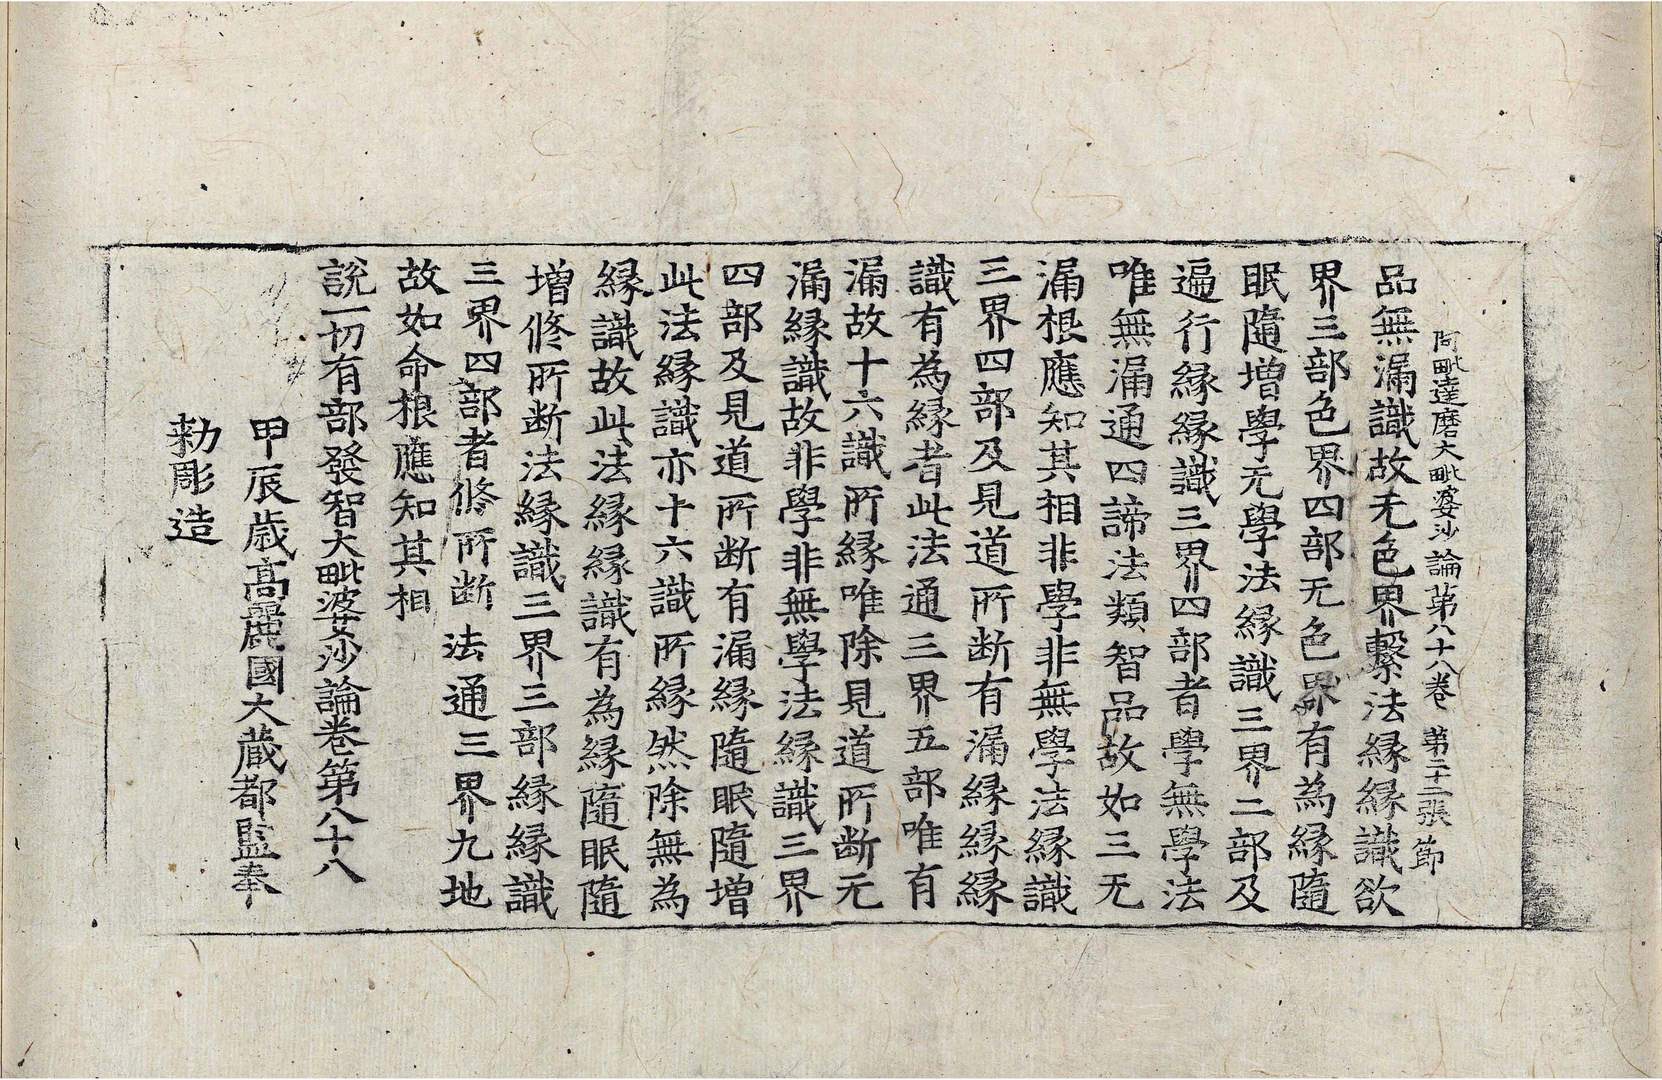 阿毗達磨大毗婆沙論第八十八卷 第二十三張 節
品無漏識故无色界繫法緣緣識欲
界三部色界四部无色界有為緣隨
眠隨增學无學法緣識三界二部及
遍行緣緣識三界四部者學無學法
唯無漏通四諦法類智品故如三无
漏根應知其相非學非無學法緣識
三界四部及見道所斷有漏緣緣緣
識有為緣者此法通三界五部唯有
漏故十六識所緣唯除見道所斷无
漏緣識故非學非無學法緣識三界
四部及見道所斷有漏緣隨眠隨增
此法緣識亦十六識所緣然除無為
緣識故此法緣緣識有為緣隨眠隨
增修所斷法緣識三界三部緣緣識
三界四部者修所斷法通三界九地
故如命根應知其相
說一切有部發智大毗婆沙論卷第八十八
甲辰歲高麗國大藏都監奉
勑彫造